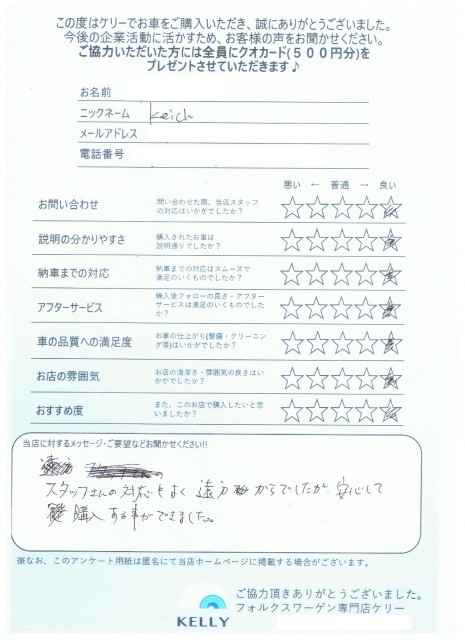 この度はケリーでお車をご購入いただき、誠にありがとうございました。
今後の企業活動に活かすため、お客様の声をお聞かせください。
ご協力いただいた方には全員にクオカード(５００円分)を
プレゼントさせていただきます♪
お名前
ニックネーム keich
メールアドレス
電話番号
悪い ← 普通 → 良い
お問い合わせ 問い合わせた際、当店スタッフの対応はいかがでしたか？ ☆☆☆☆☆
説明の分かりやすさ 購入されたお車は説明通りでしたか？ ☆☆☆☆☆
納車までの対応 納車までの対応はスムーズで満足のいくものでしたか？ ☆☆☆☆☆
アフターサービス 購入後フォローの良さ・アフターサービスは満足のいくものでしたか？ ☆☆☆☆☆
車の品質への満足度 お車の仕上がり(整備・クリーニング等)はいかがでしたか？ ☆☆☆☆☆
お店の雰囲気 お店の清潔さ・雰囲気の良さはいかがでしたか？ ☆☆☆☆☆
おすすめ度 また、このお店で購入したいと思いましたか？ ☆☆☆☆☆
当店に対するメッセージ・ご要望などお聞かせください!!
スタッフさんの対応もよく 遠方からでしたが、安心して
購入する事ができました。
※なお、このアンケート用紙は匿名にて当店ホームページに掲載する場合がございます。
ご協力頂きありがとうございました。
KELLY フォルクスワーゲン専門店ケリー